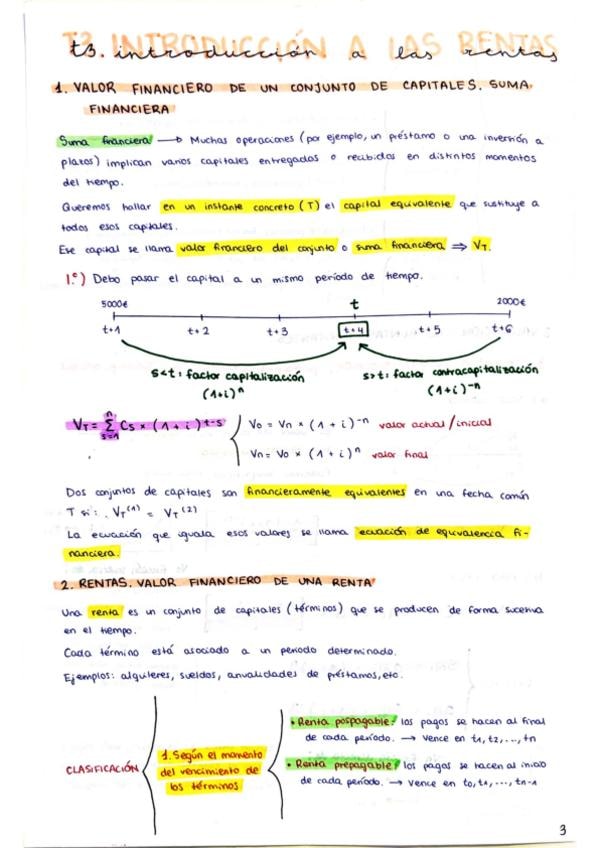 t3. introducción a las rentas
1. VALOR FINANCIERO DE UN CONJUNTO DE CAPITALES. SUMA
FINANCIERA
Suma financiera → Muchas operaciones (por ejemplo, un préstamo o una inversión a
plazos) implican varios capitales entregados o recibidos en distintos momentos
del tiempo.
Queremos hallar en un instante concreto (T) el capital equivalente que sustituye a
todos esos capitales.
Ese capital se llama valor financiero del conjunto o suma financiera ⇒ VT.
1.º) Debo pasar el capital a un mismo período de tiempo.
5000€ t 2000€
t+1 t+2 t+3 t+4 t+5 t+6
s<t: factor capitalización s>t: factor contracapitalización
(1+i)ⁿ (1+i)⁻ⁿ
VT = Σ Cs × (1+i)^t-s n s=1
V0 = Vn × (1+i)⁻ⁿ valor actual/inicial
Vn = V0 × (1+i)ⁿ valor final
Dos conjuntos de capitales son financieramente equivalentes en una fecha común
T si: VT⁽¹⁾ = VT⁽²⁾
La ecuación que iguala esos valores se llama ecuación de equivalencia fi-
nanciera.
2. RENTAS. VALOR FINANCIERO DE UNA RENTA
Una renta es un conjunto de capitales (términos) que se producen de forma sucesiva
en el tiempo.
Cada término está asociado a un periodo determinado.
Ejemplos: alquileres, sueldos, anualidades de préstamos, etc.
CLASIFICACIÓN
1. Según el momento
del vencimiento de
los términos
• Renta pospagable: los pagos se hacen al final
de cada período. → Vence en t1, t2, ..., tn
• Renta prepagable: los pagos se hacen al inicio
de cada período. → Vence en t0, t1, ..., tn-1
3